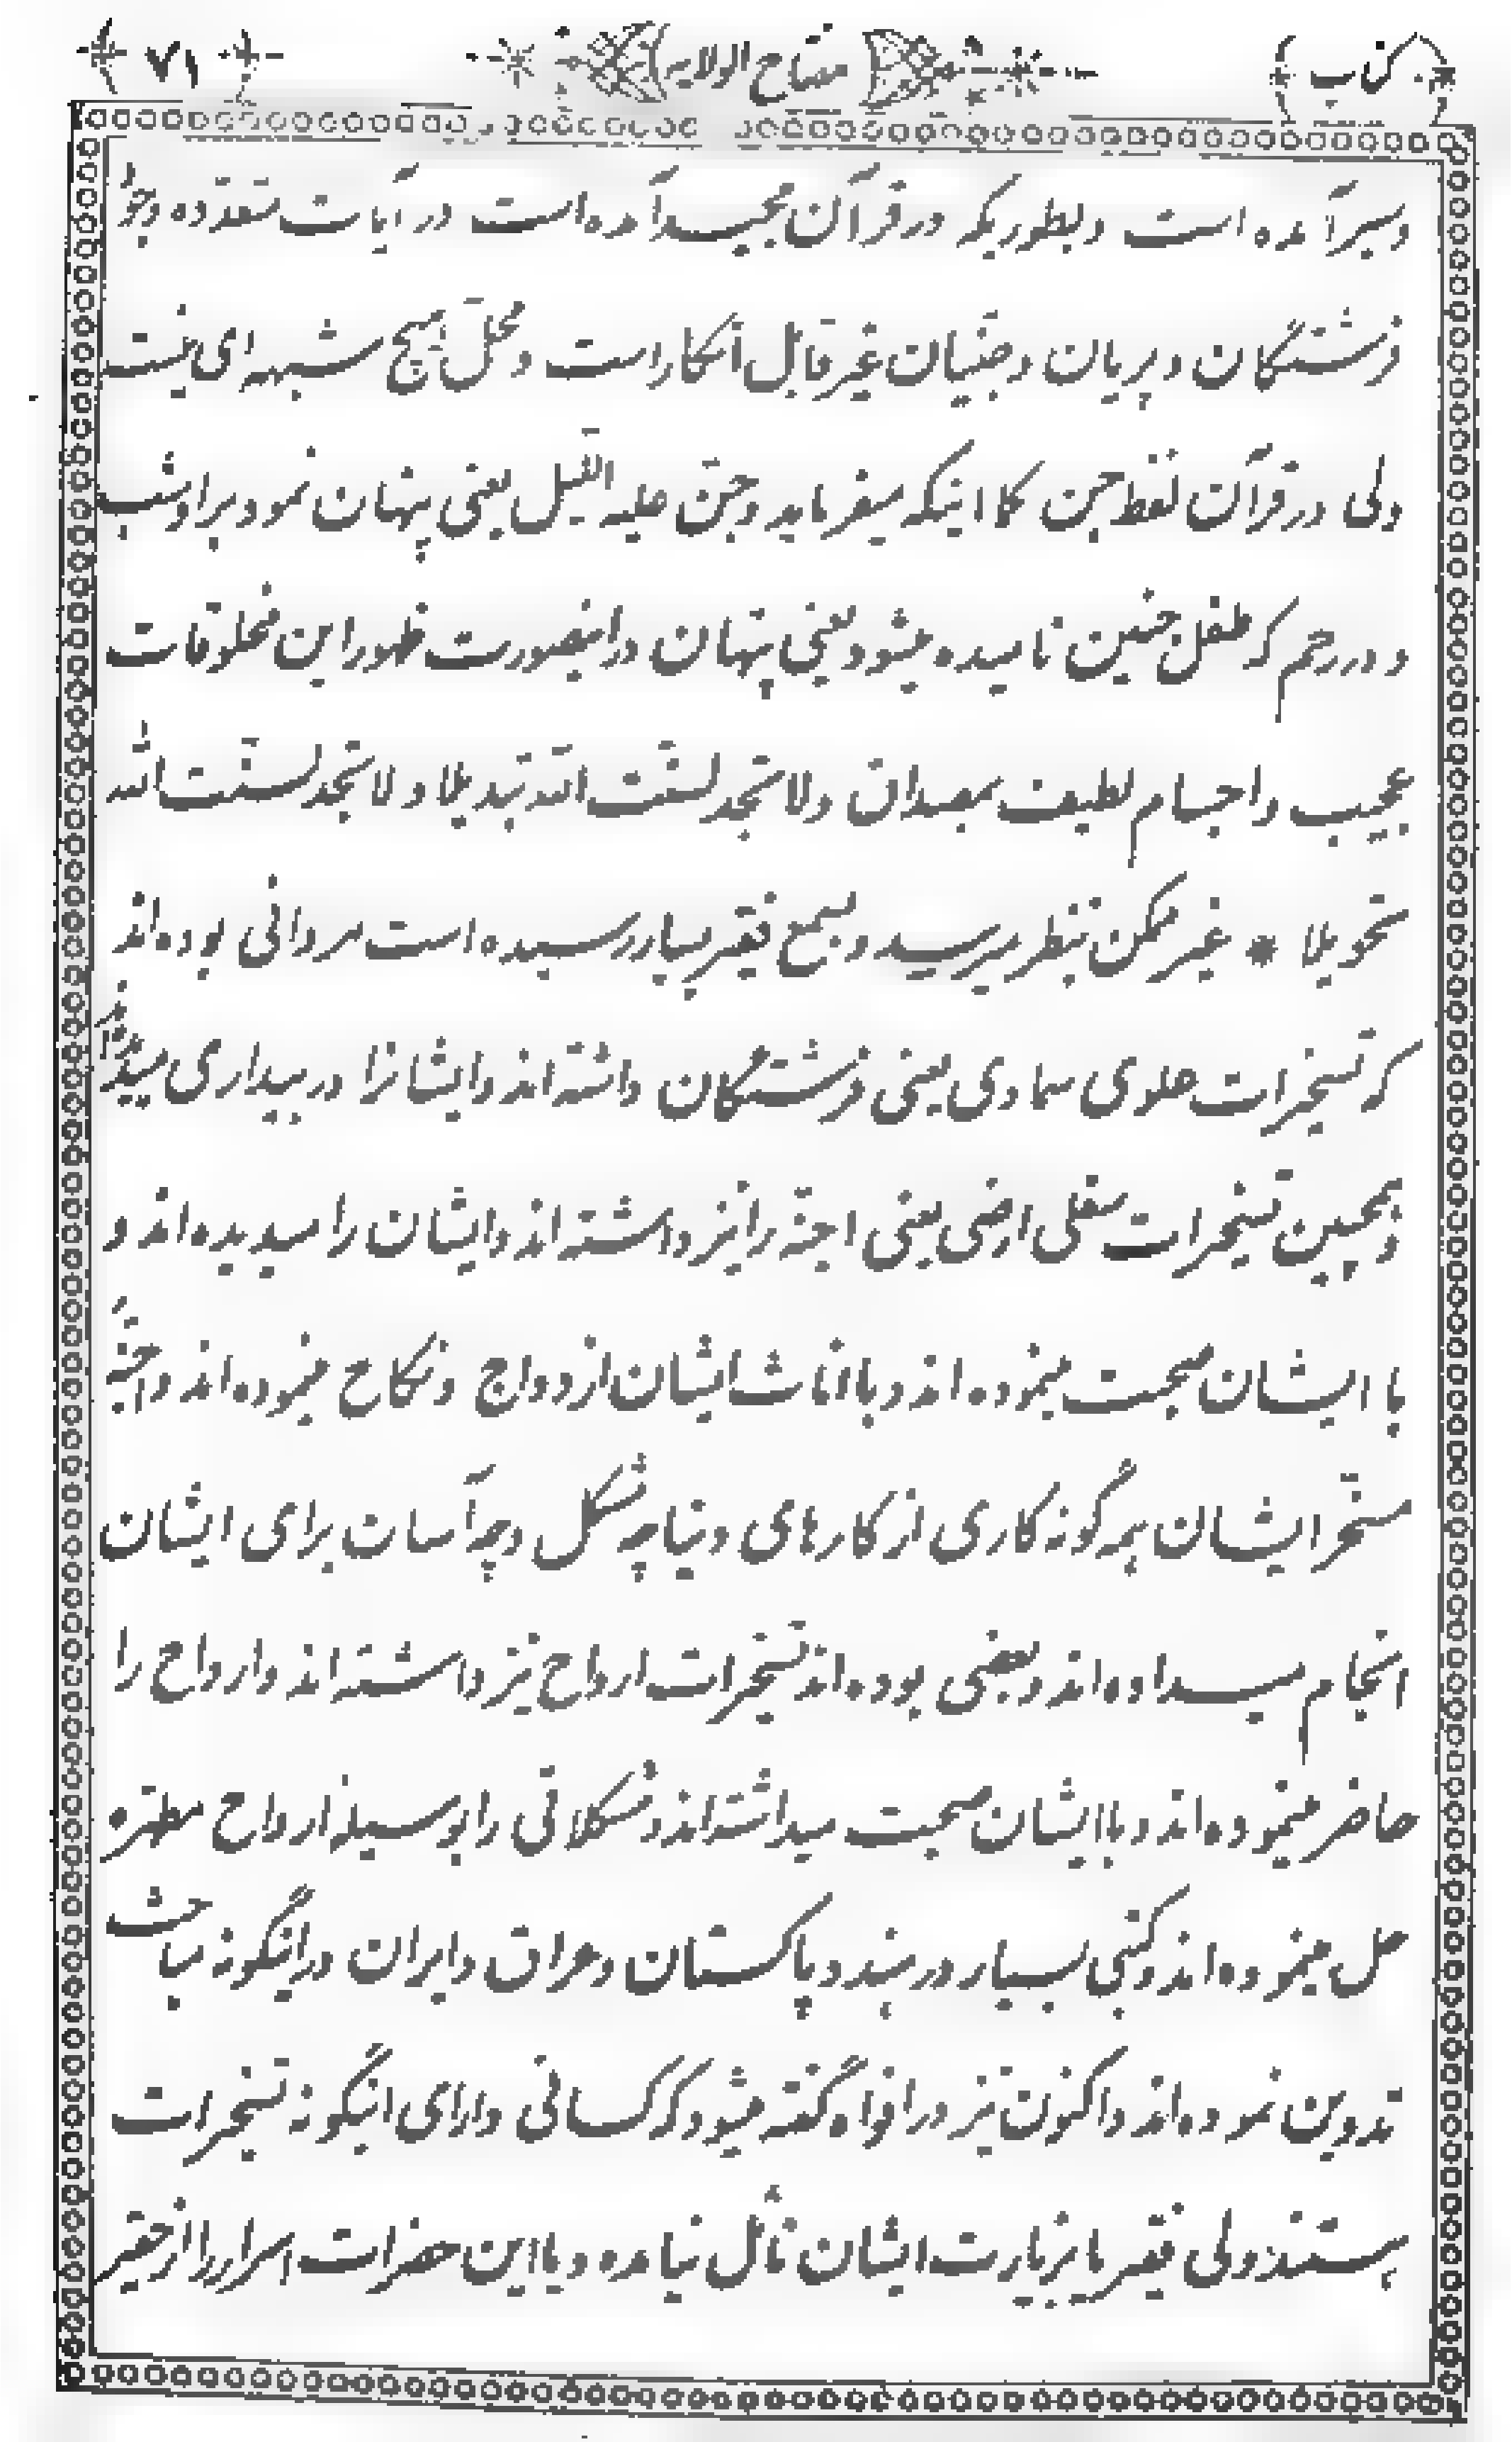 کتاب مفتاح الولایه ۷۱
و سیر آمده است و بطوریکه در قرآن مجید آمده است در آیات متعدده وجود
فرشتگان و پریان و جنیان غیر قابل انکار است و محل هیچ شبهه ای نیست
ولی در قرآن لفظ جن کما اینکه میفرماید و جن علیه اللیل یعنی پنهان نمود بر او شب
و در رحم که طفل جنین نامیده میشود یعنی پنهان در اینصورت ظهور این مخلوقات
عجیب و اجسام لطیف بمصداق ولا تجد لسنت الله تبدیلا و لا تجد لسنت الله
تحویلا * غیر ممکن بنظر میرسید و بسمع فقیر بسیار رسیده است مردانی بوده‌اند
که تسخیرات علوی سماوی یعنی فرشتگان داشته اند و ایشانرا در بیداری میدیده‌اند
و همچنین تسخیرات سفلی ارضی یعنی اجنه را نیز داشته اند و ایشان را میدیده‌اند و
با ایشان صحبت مینموده اند و با اناث ایشان ازدواج و نکاح مینموده‌اند و اجنه
مسخر ایشان همه گونه کاری از کارهای دنیا چه مشکل و چه آسان برای ایشان
انجام میداده‌اند و بعضی بوده‌اند تسخیرات ارواح نیز داشته اند و ارواح را
حاضر مینموده‌اند و با ایشان صحبت میداشته‌اند و مشکلاتی را بوسیله ارواح مطهره
حل مینموده‌اند و کتبی بسیار در هند و پاکستان و عراق و ایران در اینگونه مباحث
تدوین نموده‌اند و اکنون نیز در افواه گفته میشود که کسانی دارای اینگونه تسخیرات
هستند ولی فقیر بزیارت ایشان نائل نیامده و یا این حضرات اسرار را از حقیر